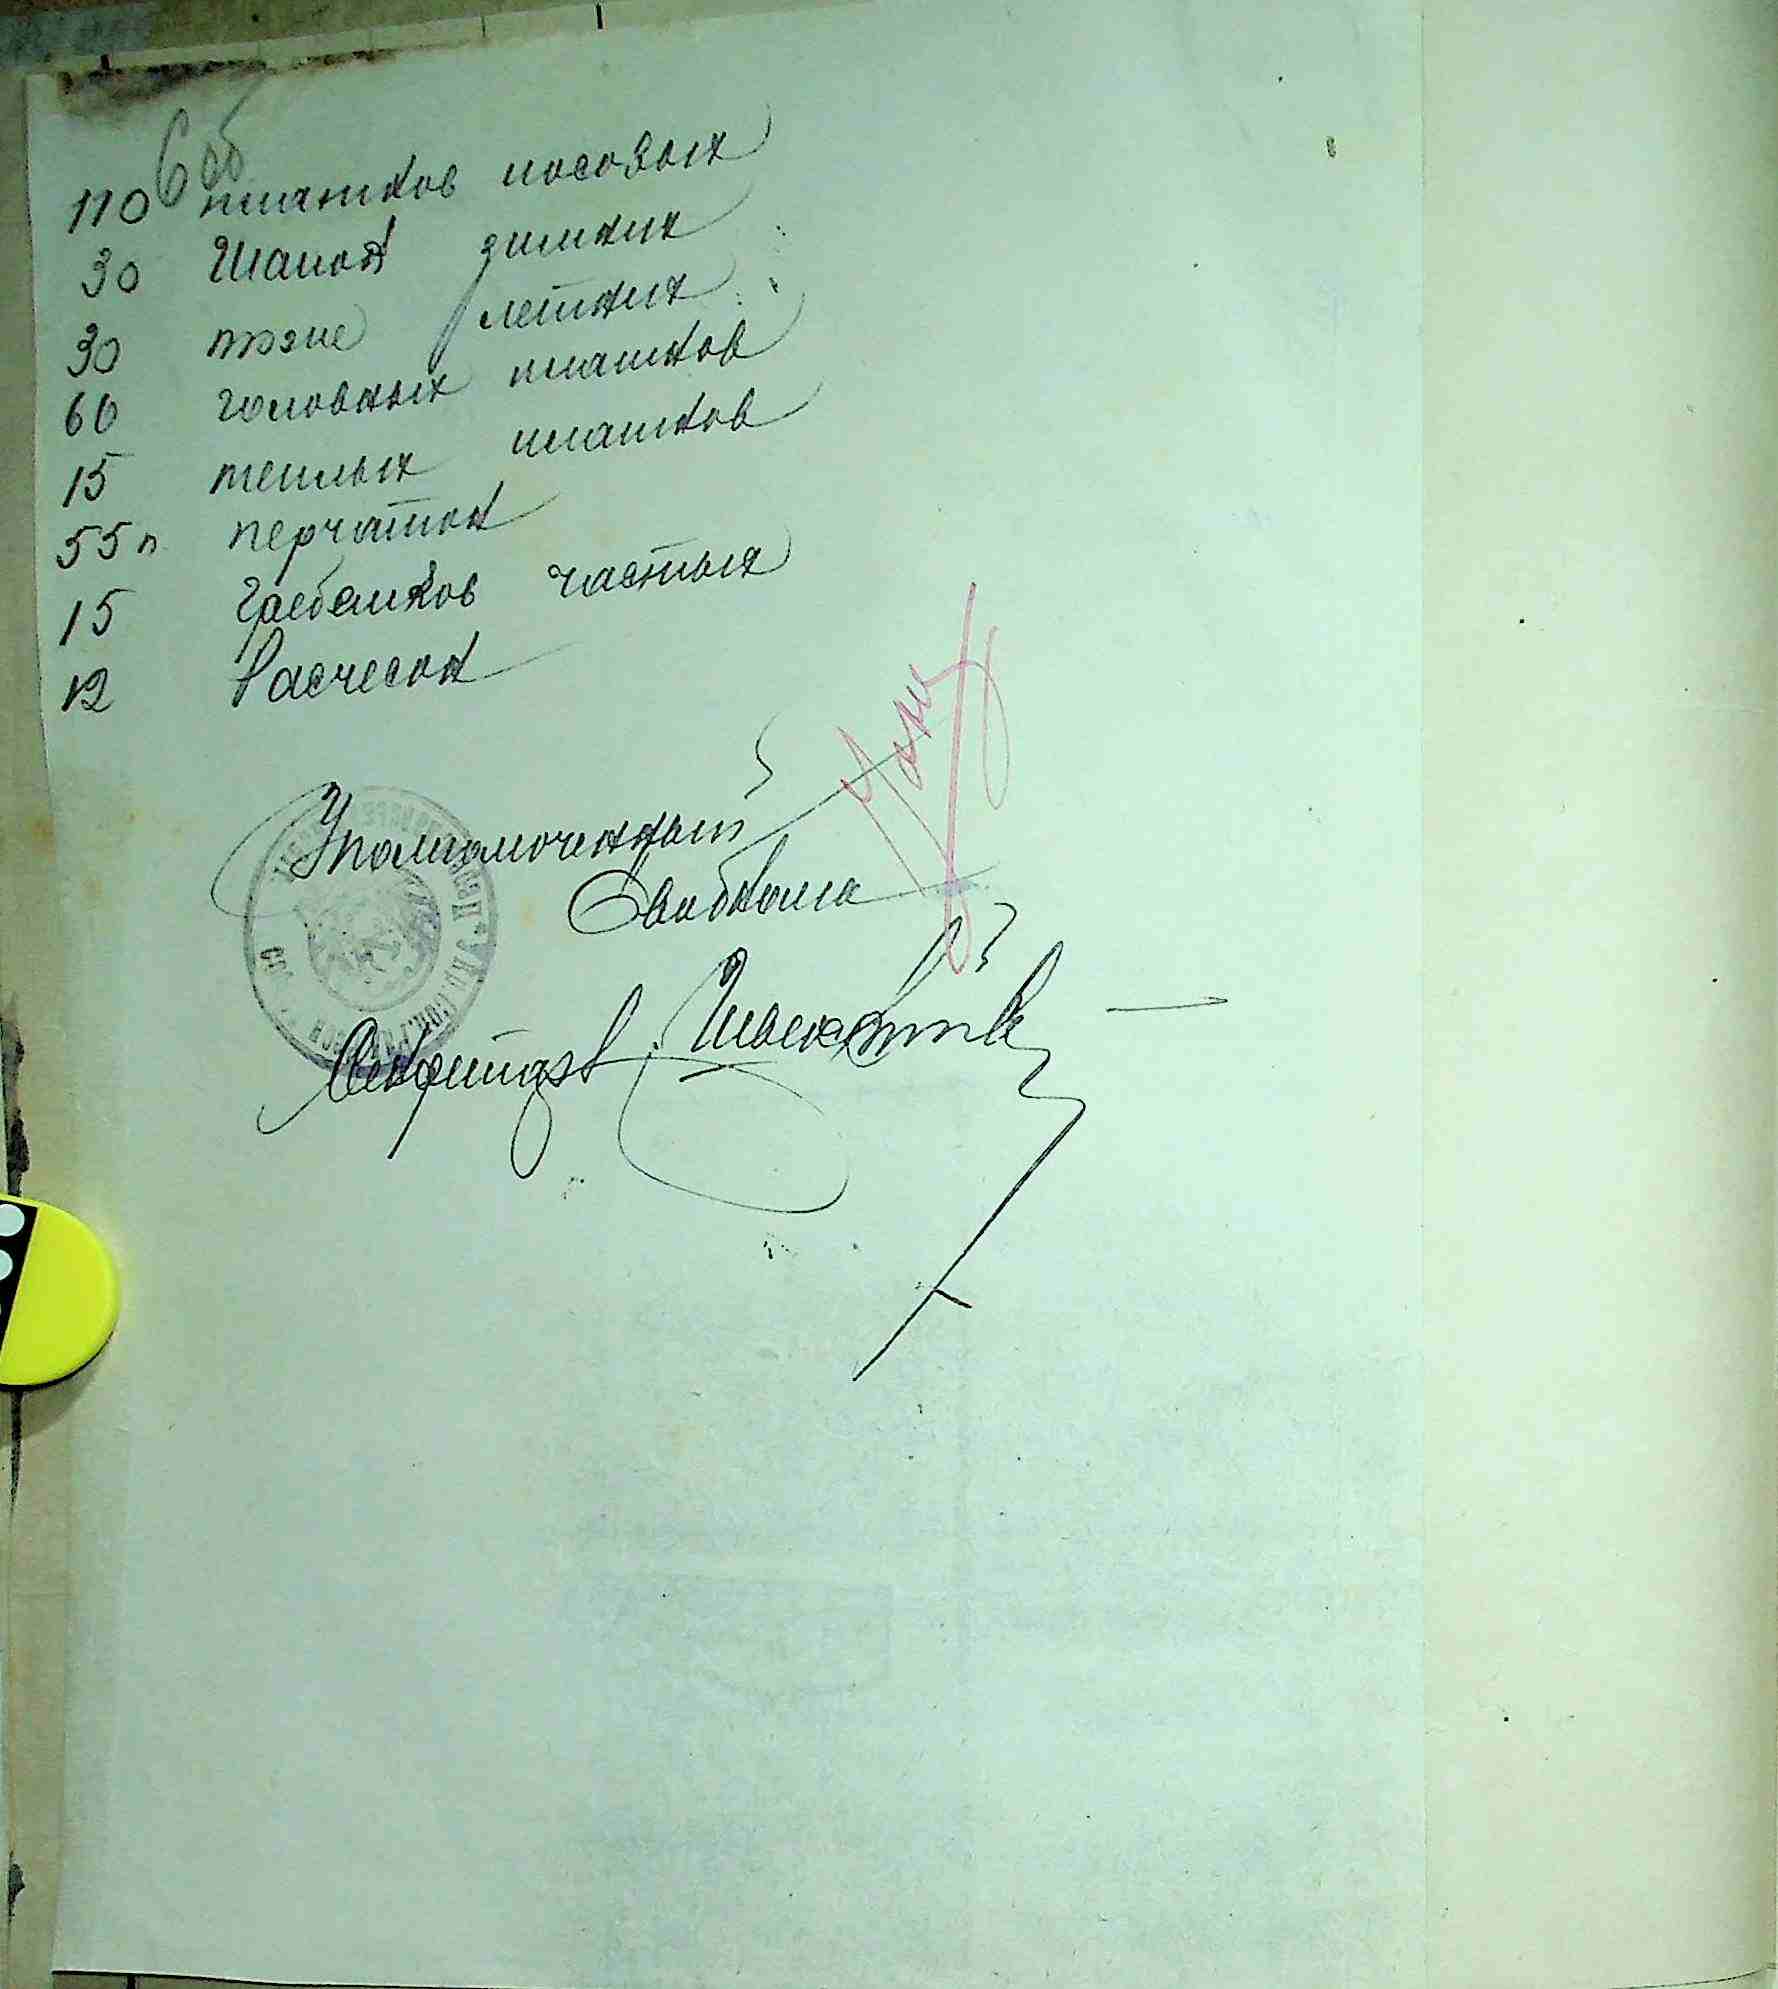 6 об
110 платков носовых
30 Шапок зимних
30 тоже летних
60 головных платков
15 теплых платков
55 п перчаток
15 Гребешков частых
12 Расчесок
Уполномоченный
Секретарь